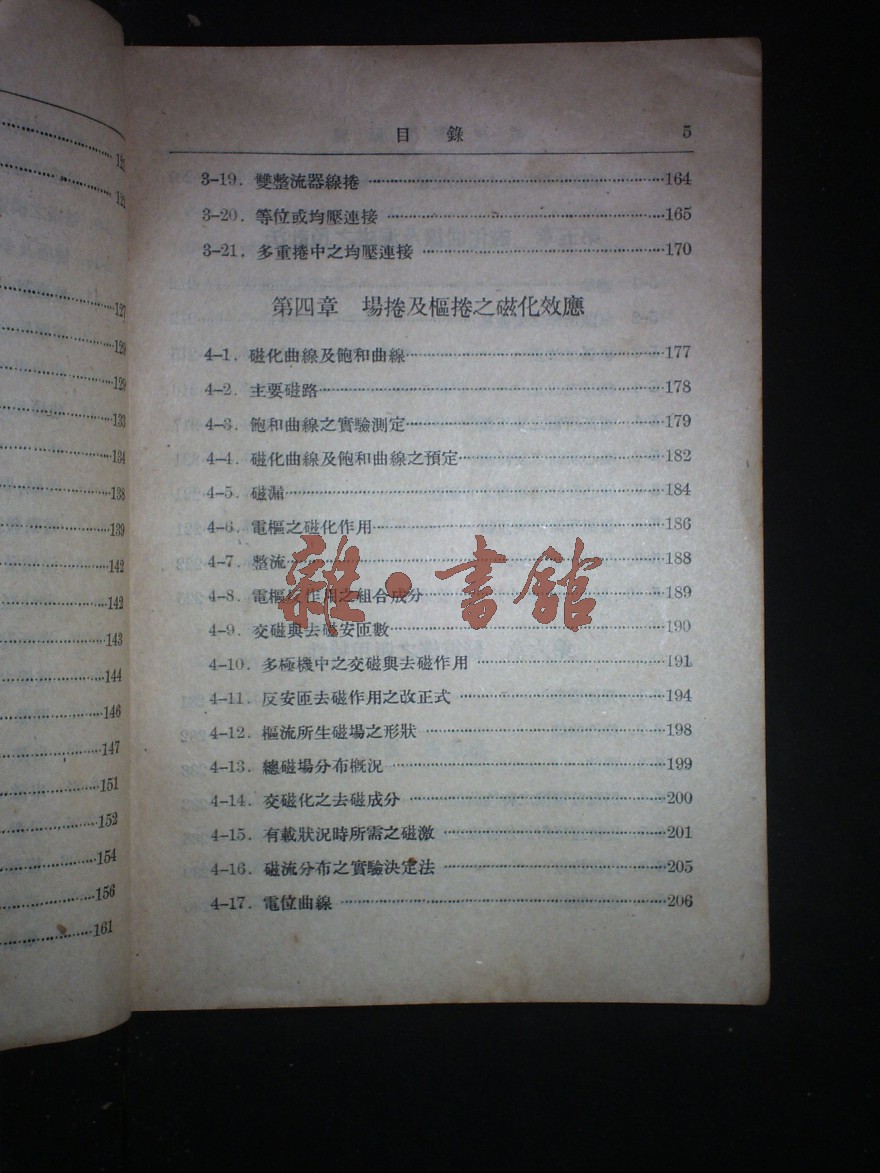 121
121
127
129
129
133
134
138
139
142
142
143
144
146
147
151
152
154
156
161
目 錄 5
3-19. 雙整流器線捲 164
3-20. 等位或均壓連接 165
3-21. 多重捲中之均壓連接 170
第四章 場捲及樞捲之磁化效應
4-1. 磁化曲線及飽和曲線 177
4-2. 主要磁路 178
4-3. 飽和曲線之實驗測定 179
4-4. 磁化曲線及飽和曲線之預定 182
4-5. 磁漏 184
4-6. 電樞之磁化作用 186
4-7. 整流 188
4-8. 電樞反作用之組合成分 189
4-9. 交磁與去磁安匝數 190
4-10. 多極機中之交磁與去磁作用 191
4-11. 反安匝去磁作用之改正式 194
4-12. 樞流所生磁場之形狀 198
4-13. 總磁場分布概況 199
4-14. 交磁化之去磁成分 200
4-15. 有載狀況時所需之磁激 201
4-16. 磁流分布之實驗決定法 205
4-17. 電位曲線 206
雜·書館